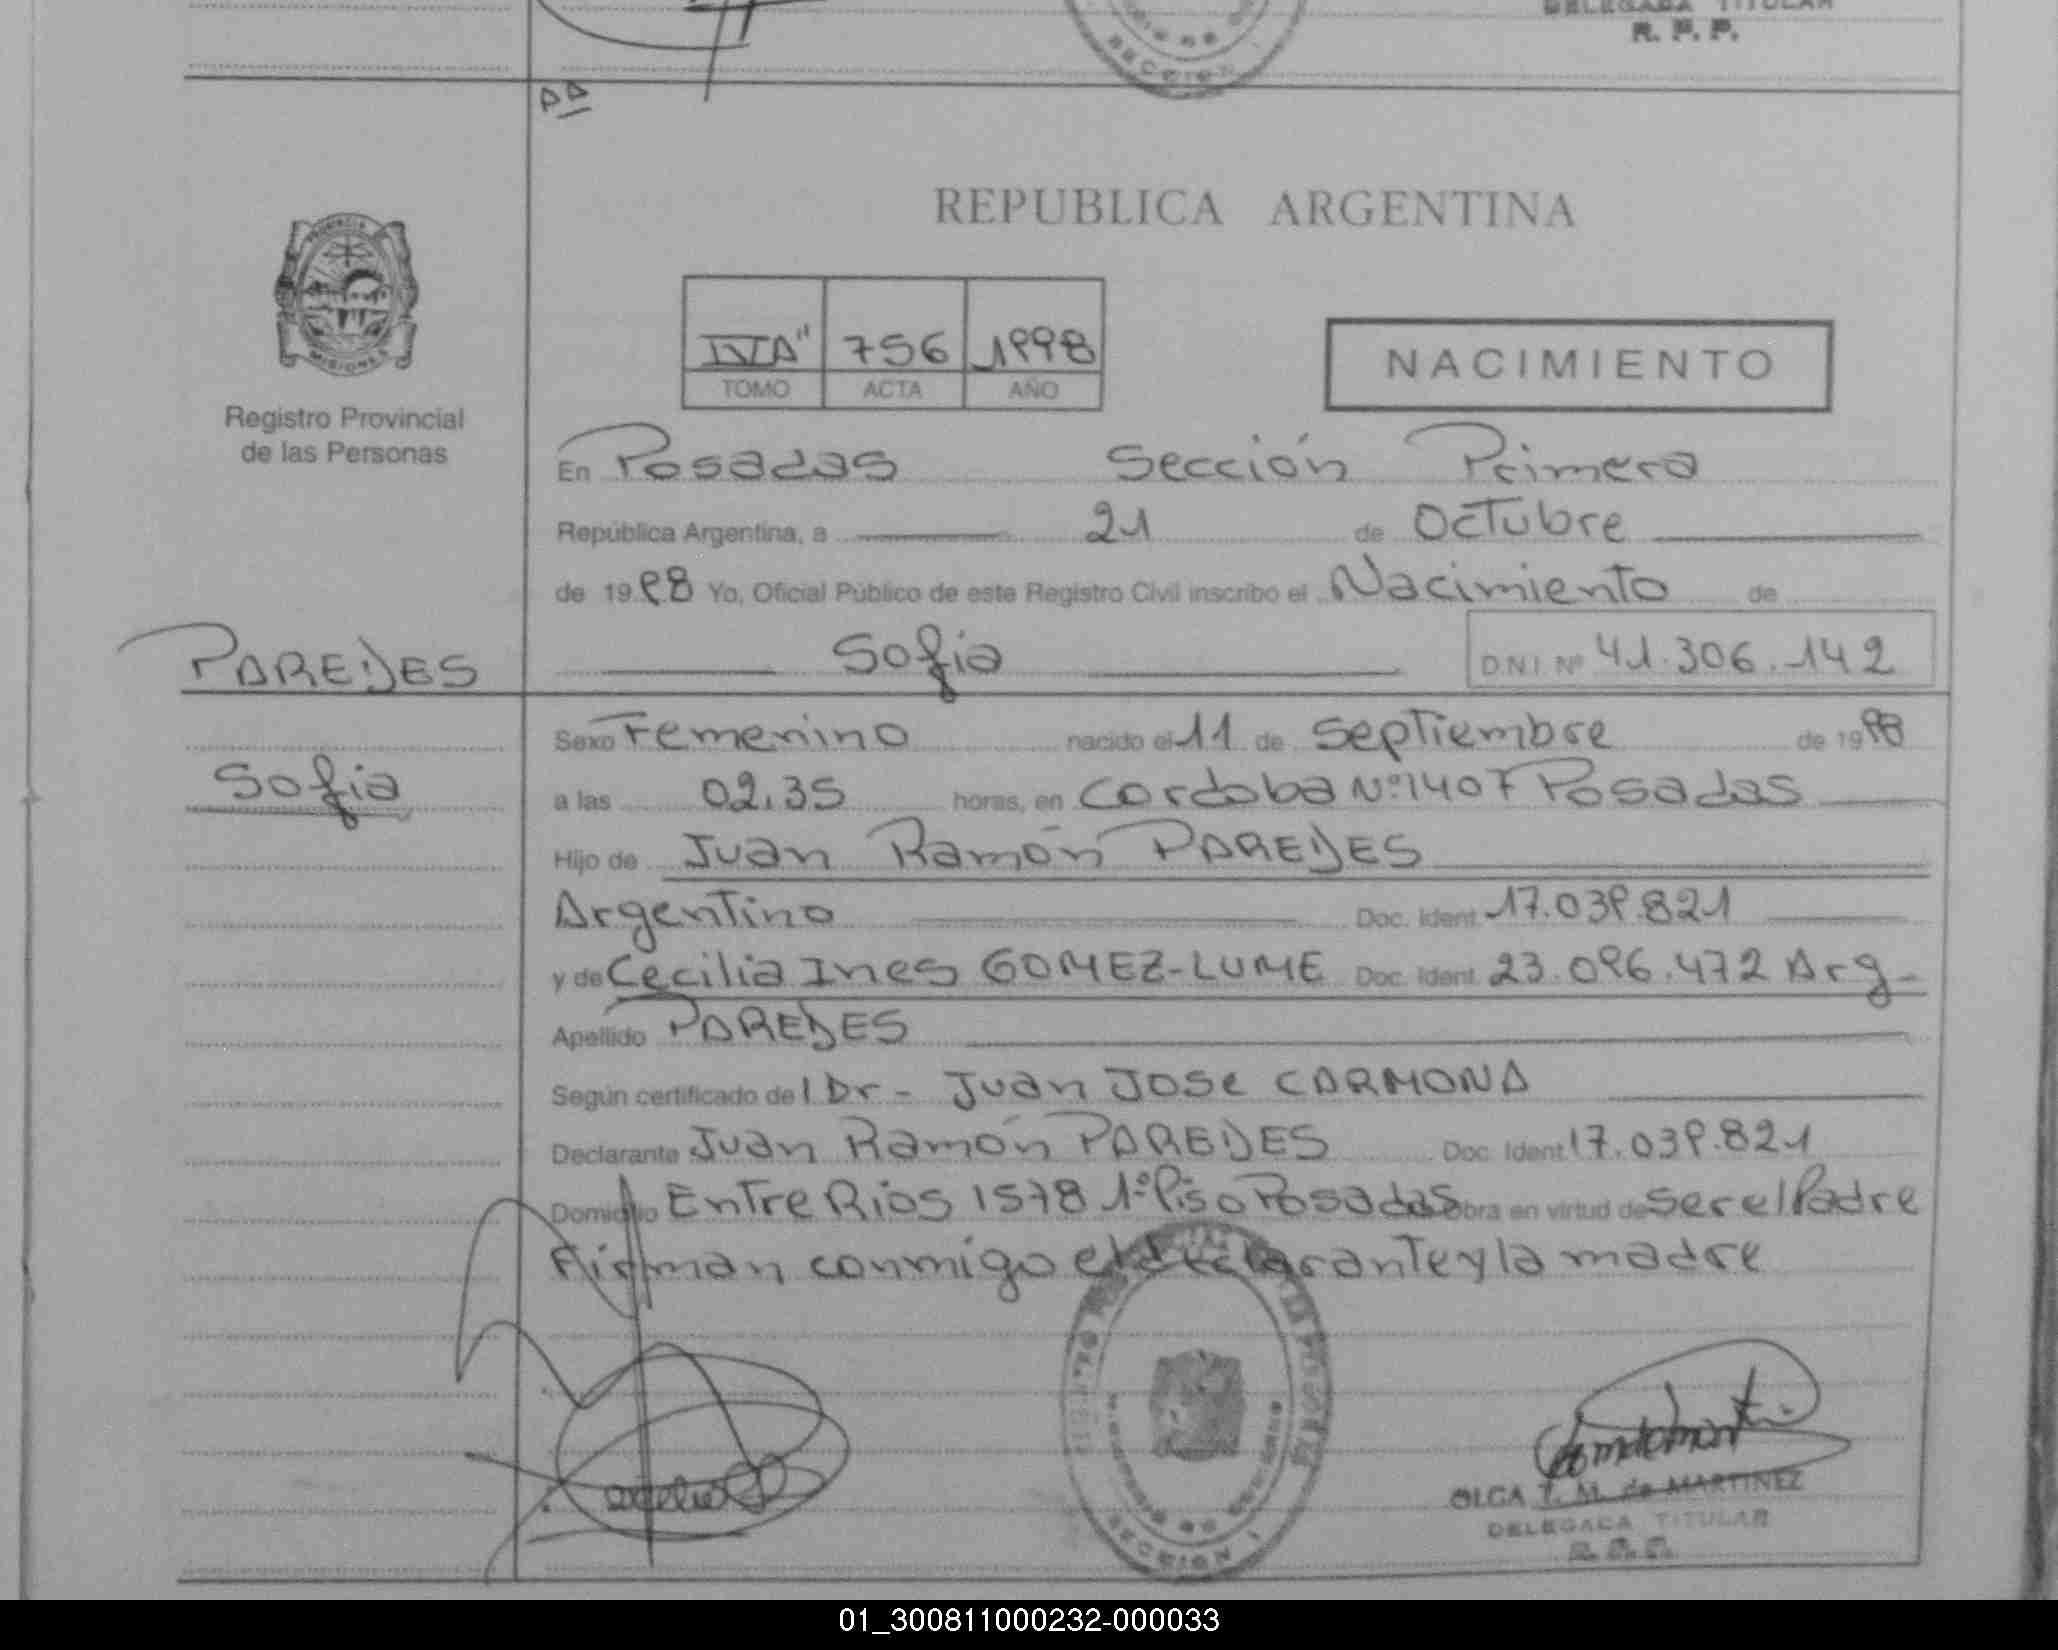 DELEGADA TITULAR
R. P. P.
SECCION
REPUBLICA ARGENTINA
PROVINCIA
MISIONES
756 1998
TOMO ACTA AÑO
NACIMIENTO
Registro Provincial
de las Personas
En Posadas Sección Primera
República Argentina, a 21 de Octubre
de 1998 Yo, Oficial Público de este Registro Civil inscribo el Nacimiento de
PAREDES
Sofia
D.N.I. Nº 41.306.142
Sexo Femenino nacido el 11 de Septiembre de 1998
Sofia
a las 02,35 horas, en Cordoba Nº 1407 Posadas
Hijo de Juan Ramón PAREDES
Argentino Doc. Ident. 17.039.821
y de Cecilia Ines GOMEZ-LUME Doc. Ident. 23.096.472 Arg-
Apellido PAREDES
Según certificado del Dr- Juan Jose CARMONA
Declarante Juan Ramón PAREDES Doc. Ident 17.039.821
Domicilio Entre Rios 1578 1º Piso Posadas Obra en virtud de Ser el Padre
Firman conmigo el declarante y la madre
SECCION 1
OLGA T. M. de MARTINEZ
DELEGADA TITULAR
R. P. P.
01_300811000232-000033